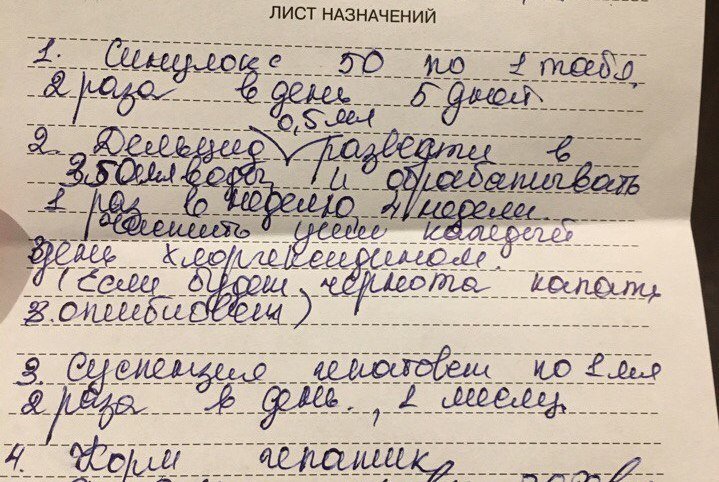 ЛИСТ НАЗНАЧЕНИЙ
1. Синулокс 50 по 1 табл.
2 раза в день 5 дней
0,5 мл
2. Дельцид развести в
350 мл воды и обрабатывать
1 раз в неделю 4 недели.
Чистить уши каждый
день хлоргексидином.
(Если будет чернота капать
отибиовет)
3. Суспенция гепатовет по 1 мл
2 раза в день., 1 месяц
4. Корм гепатик